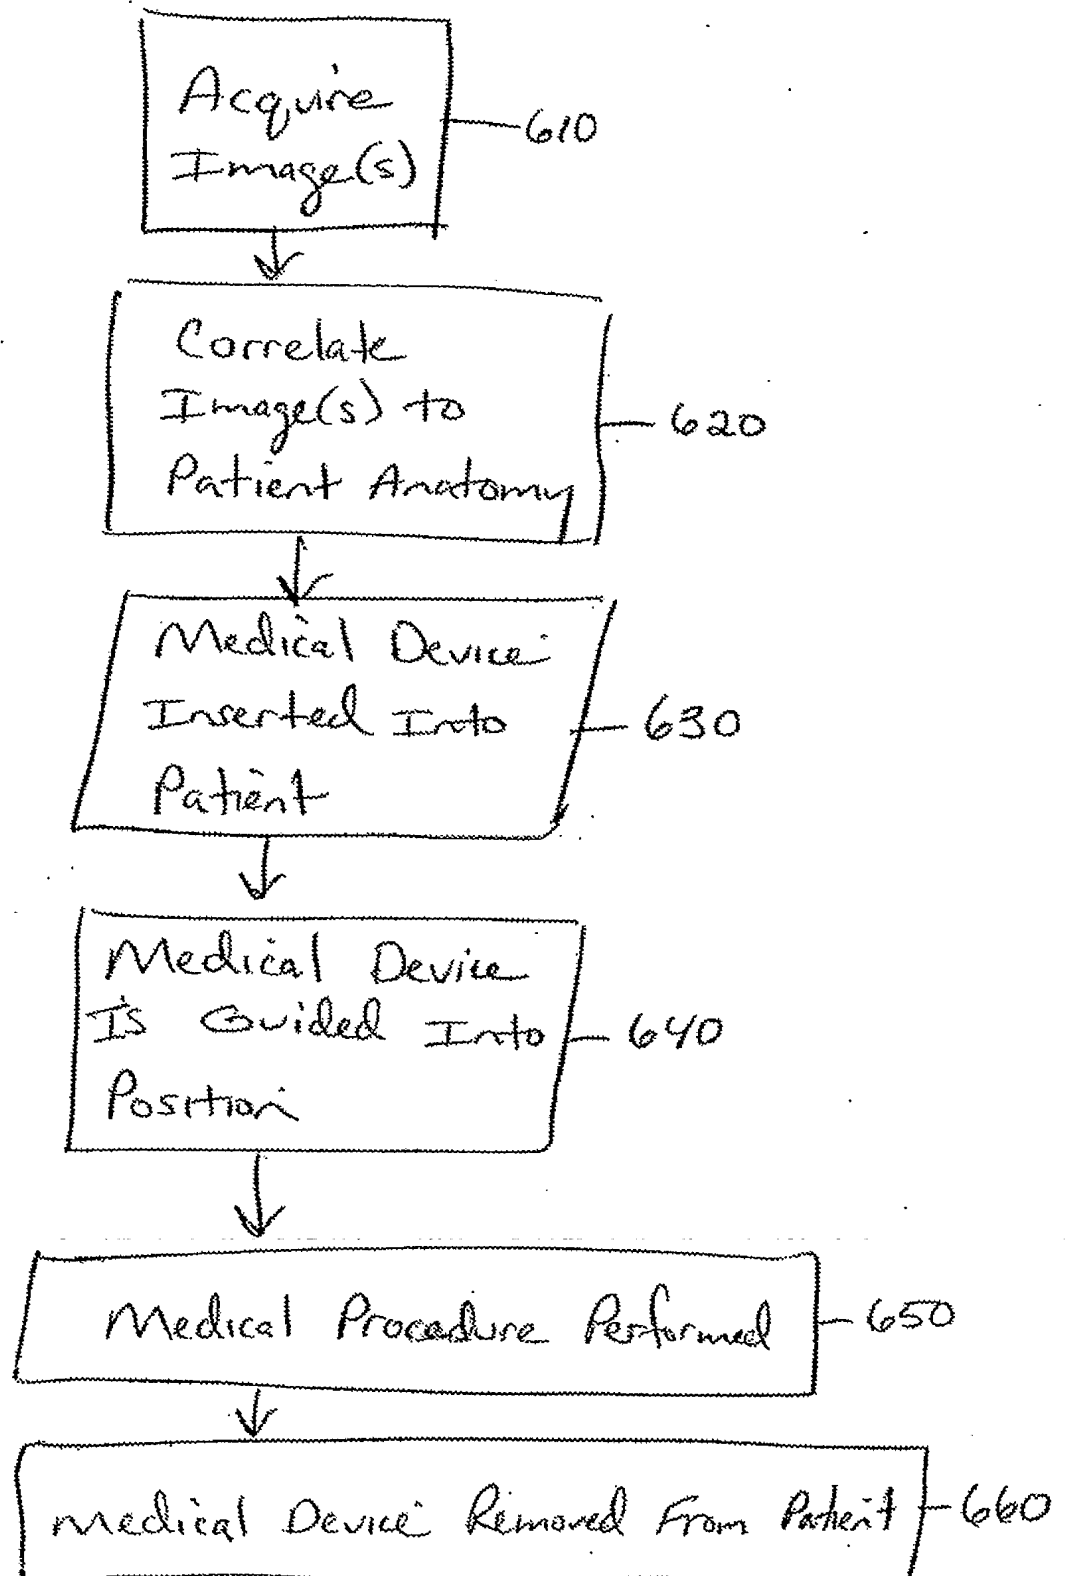 Acquire
Image(s)
610
Correlate
Image(s) to
Patient Anatomy
620
Medical Device
Inserted Into
Patient
630
Medical Device
Is Guided Into
Position
640
Medical Procedure Performed
650
Medical Device Removed From Patient
660